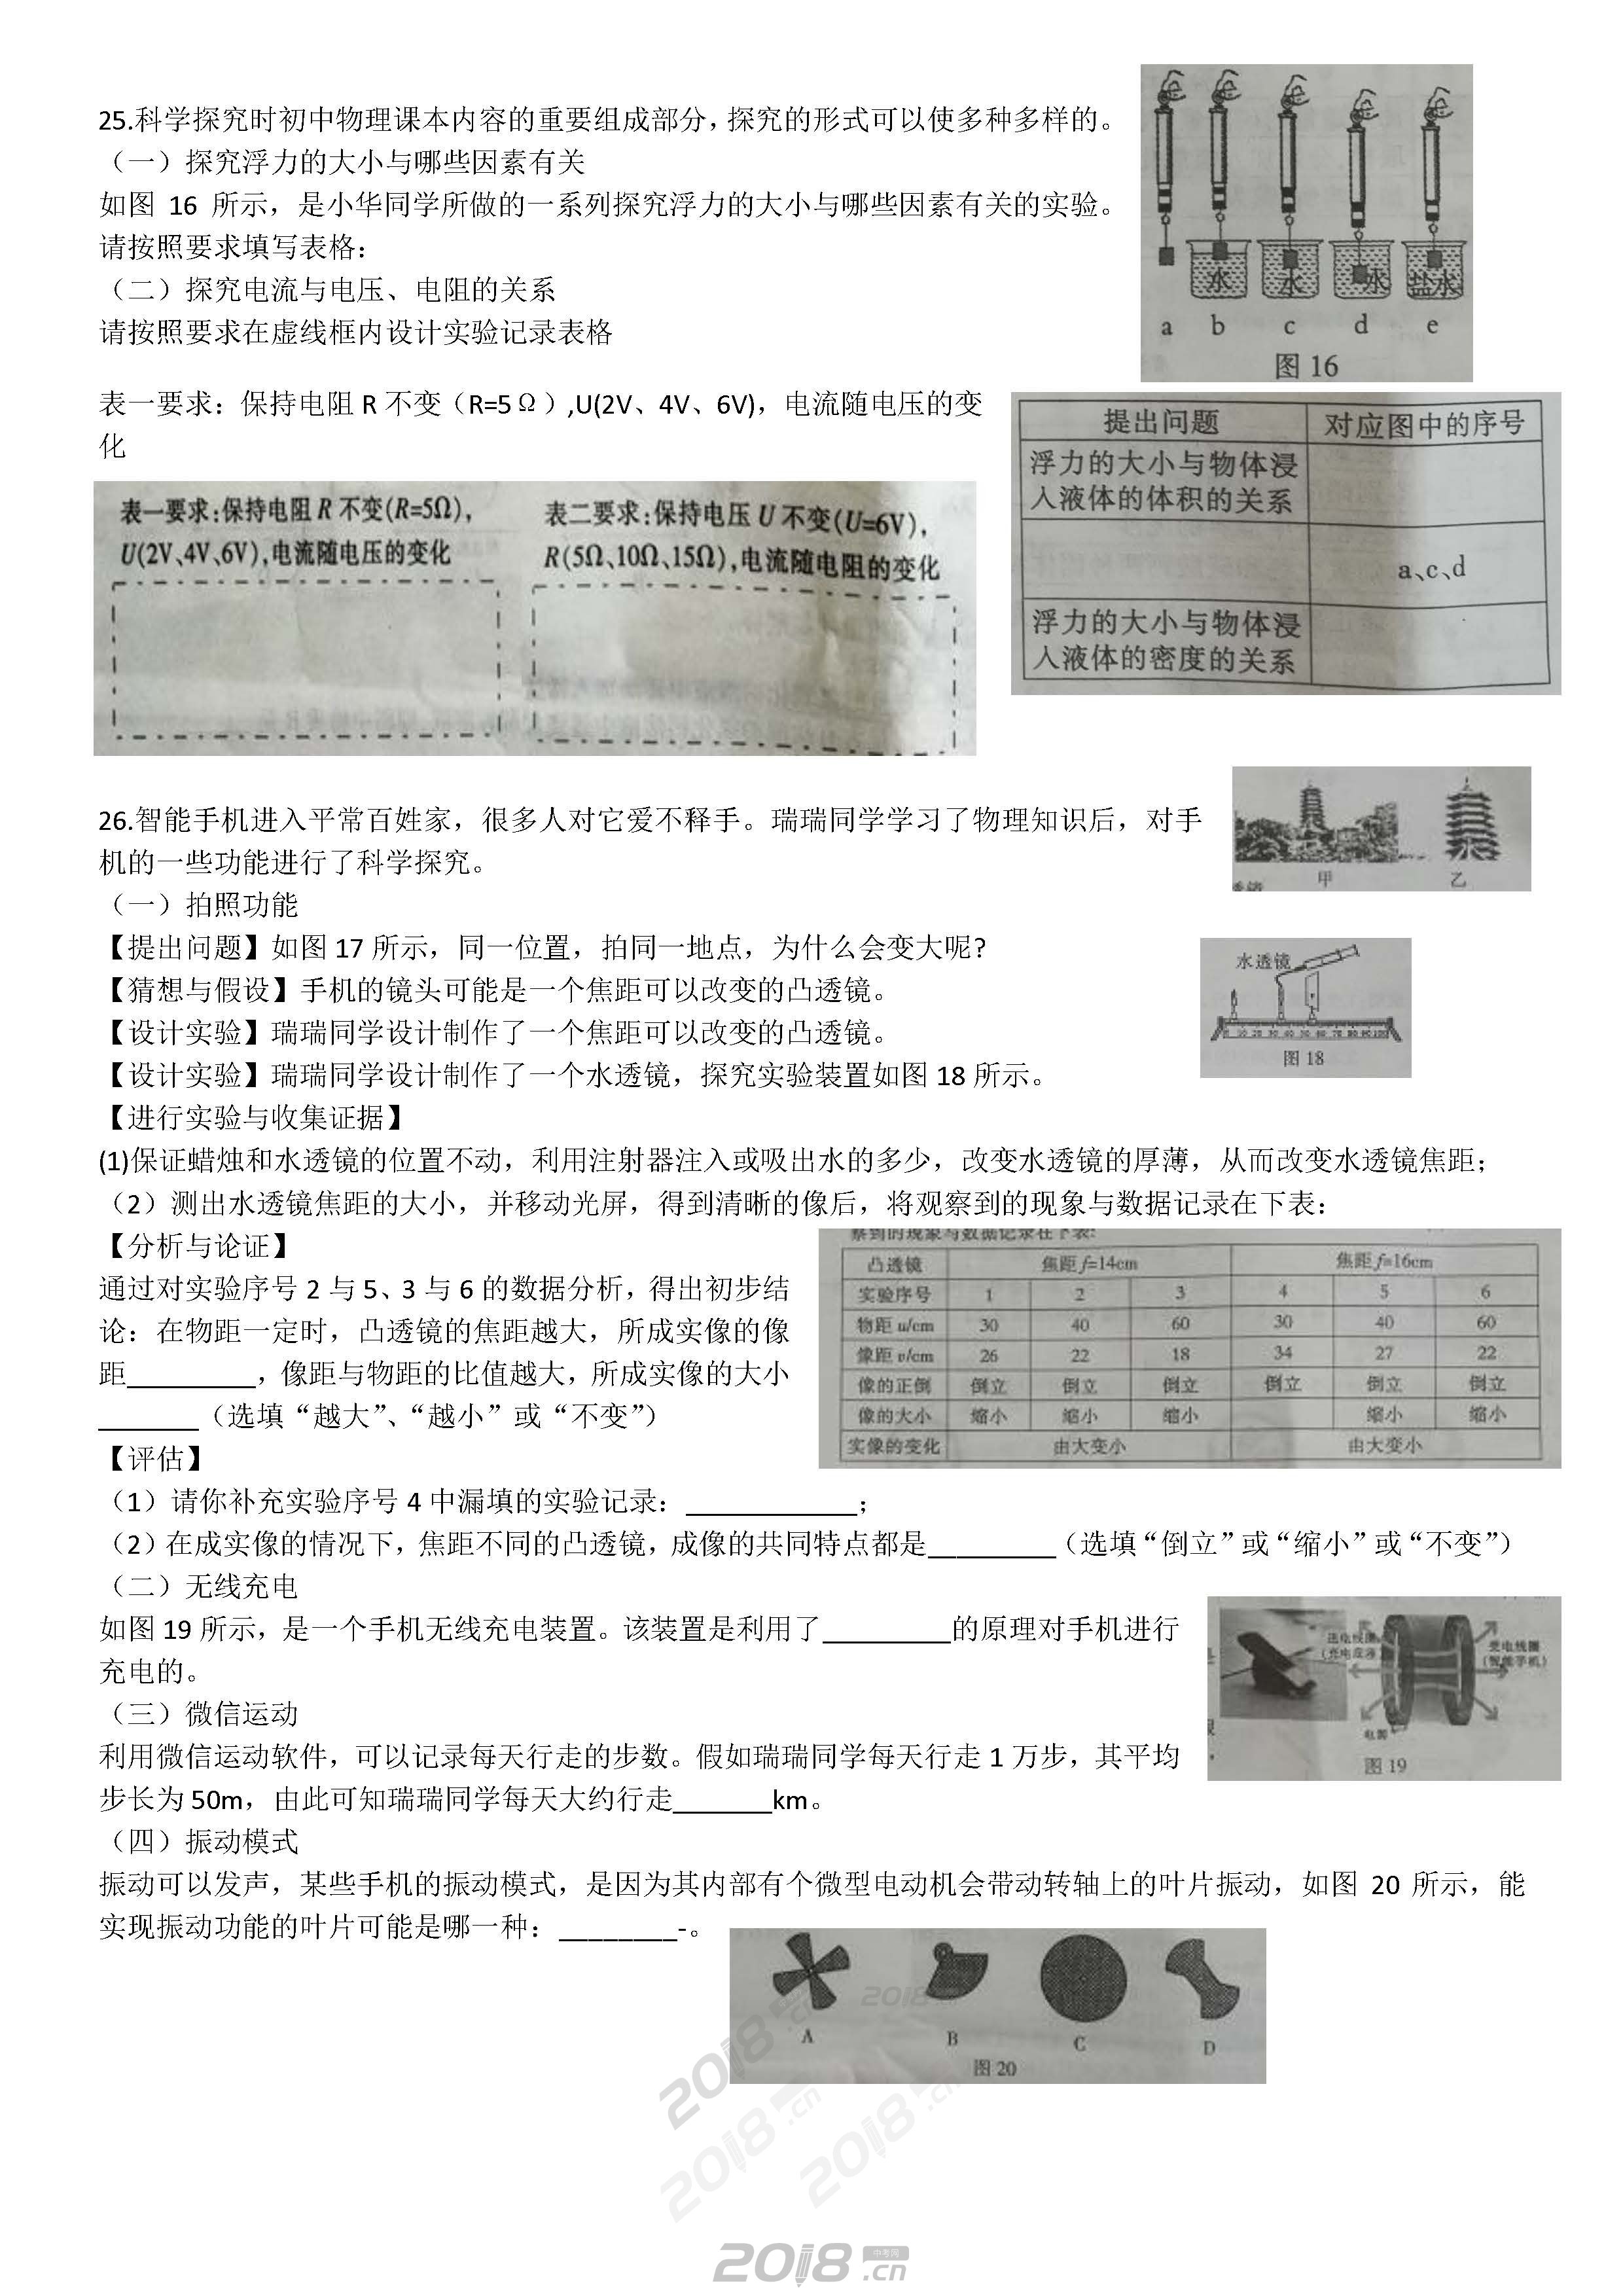 25.科学探究时初中物理课本内容的重要组成部分，探究的形式可以使多种多样的。
（一）探究浮力的大小与哪些因素有关
如图 16 所示，是小华同学所做的一系列探究浮力的大小与哪些因素有关的实验。
请按照要求填写表格：
（二）探究电流与电压、电阻的关系
请按照要求在虚线框内设计实验记录表格
水 水 水 盐水
a b c d e
图 16
表一要求：保持电阻 R 不变（R=5Ω）,U(2V、4V、6V)，电流随电压的变
化
表一要求:保持电阻 R 不变(R=5Ω),
U(2V、4V、6V),电流随电压的变化
表二要求:保持电压 U 不变(U=6V),
R(5Ω、10Ω、15Ω),电流随电阻的变化
提出问题 对应图中的序号
浮力的大小与物体浸
入液体的体积的关系
a、c、d
浮力的大小与物体浸
入液体的密度的关系
26.智能手机进入平常百姓家，很多人对它爱不释手。瑞瑞同学学习了物理知识后，对手
机的一些功能进行了科学探究。
甲 乙
（一）拍照功能
【提出问题】如图 17 所示，同一位置，拍同一地点，为什么会变大呢?
【猜想与假设】手机的镜头可能是一个焦距可以改变的凸透镜。
【设计实验】瑞瑞同学设计制作了一个焦距可以改变的凸透镜。
【设计实验】瑞瑞同学设计制作了一个水透镜，探究实验装置如图 18 所示。
水透镜
0 10 20 30 40 50 60 70 80 90 100
图 18
【进行实验与收集证据】
(1)保证蜡烛和水透镜的位置不动，利用注射器注入或吸出水的多少，改变水透镜的厚薄，从而改变水透镜焦距；
（2）测出水透镜焦距的大小，并移动光屏，得到清晰的像后，将观察到的现象与数据记录在下表：
【分析与论证】
通过对实验序号 2 与 5、3 与 6 的数据分析，得出初步结
论：在物距一定时，凸透镜的焦距越大，所成实像的像
距_________，像距与物距的比值越大，所成实像的大小
_______（选填“越大”、“越小”或“不变”）
察到的现象与数据记录在下表:
凸透镜 焦距 f=14cm 焦距 f=16cm
实验序号 1 2 3 4 5 6
物距 u/cm 30 40 60 30 40 60
像距 v/cm 26 22 18 34 27 22
像的正倒 倒立 倒立 倒立 倒立 倒立 倒立
像的大小 缩小 缩小 缩小 缩小 缩小
实像的变化 由大变小 由大变小
【评估】
（1）请你补充实验序号 4 中漏填的实验记录：____________；
（2）在成实像的情况下，焦距不同的凸透镜，成像的共同特点都是_________（选填“倒立”或“缩小”或“不变”）
（二）无线充电
如图 19 所示，是一个手机无线充电装置。该装置是利用了_________的原理对手机进行
充电的。
送电线圈
(充电底座)
受电线圈
(智能手机)
电源
图 19
（三）微信运动
利用微信运动软件，可以记录每天行走的步数。假如瑞瑞同学每天行走 1 万步，其平均
步长为 50m，由此可知瑞瑞同学每天大约行走_______km。
（四）振动模式
振动可以发声，某些手机的振动模式，是因为其内部有个微型电动机会带动转轴上的叶片振动，如图 20 所示，能
实现振动功能的叶片可能是哪一种：________-。
A B C D
图 20
2018.cn
2018.cn
2018.cn
2018.cn
中考网
2018.cn